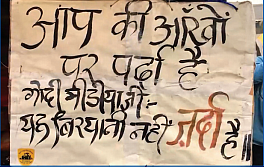 आप की आँखों
पर पर्दा है
गोदी मीडियाजी:-
यह बिरयानी नहीं ज़र्दा है॥